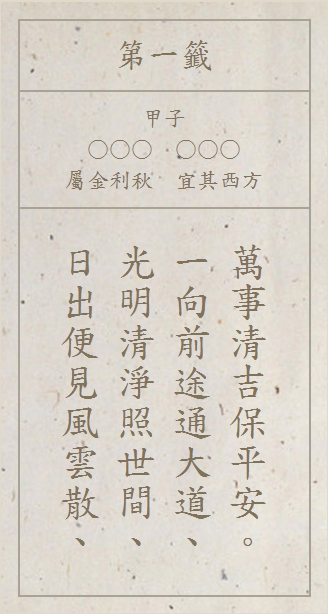 第一籤
甲子
○○○ ○○○
屬金利秋 宜其西方
日出便見風雲散、
光明清淨照世間、
一向前途通大道、
萬事清吉保平安。